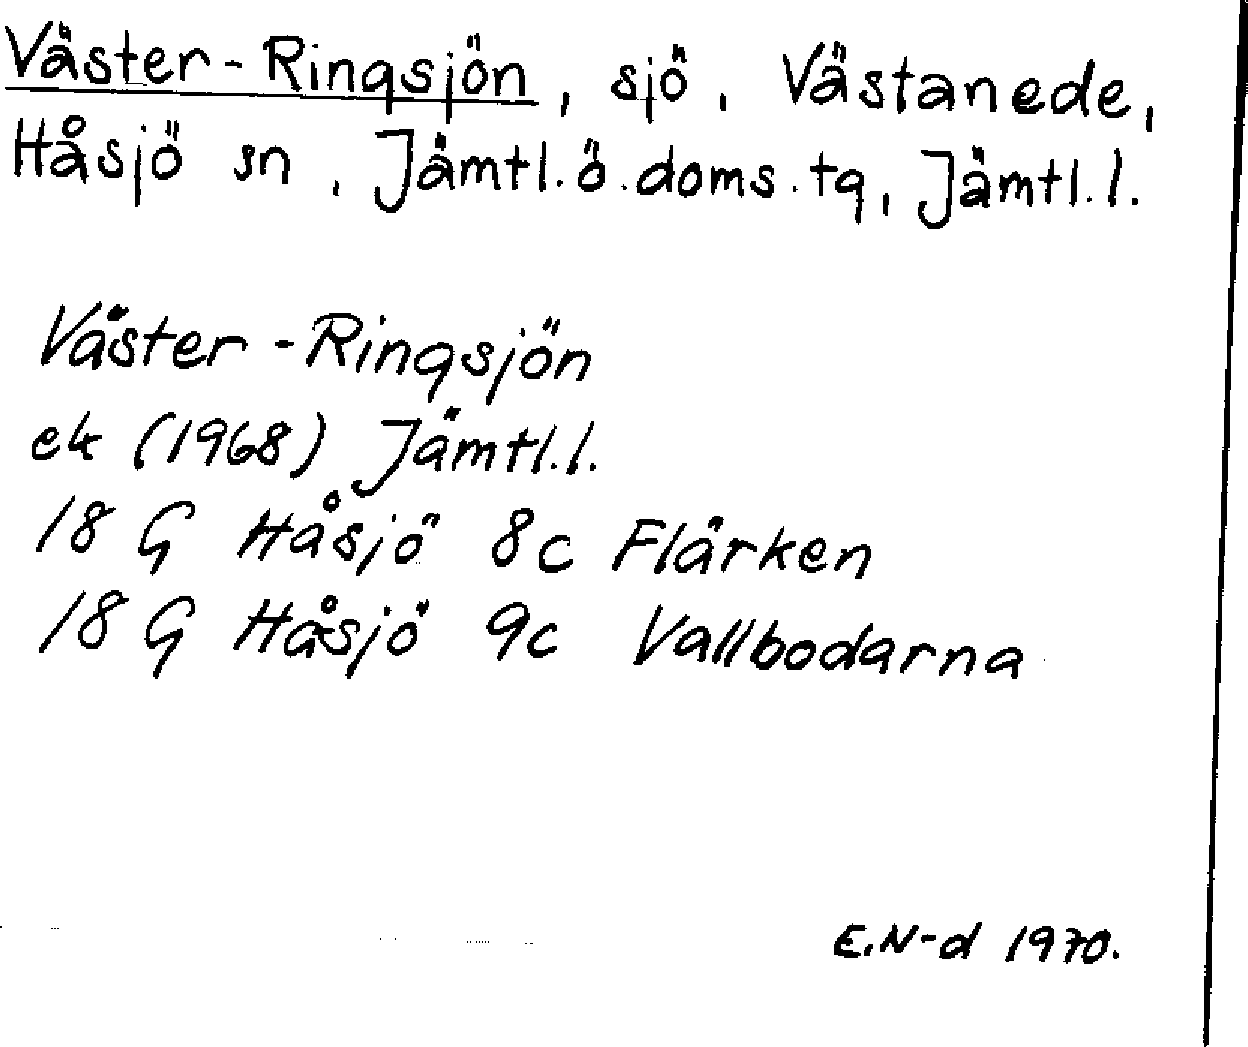 Väster-Ringsjön, sjö, Västanede,
Håsjö sn, Jämtl.ö.doms.tg, Jämtl.l.
Väster-Ringsjön
ek (1968) Jämtl.l.
18 G Håsjö 8c Flärken
18 G Håsjö 9c Vallbodarna
E.N-d 1970.